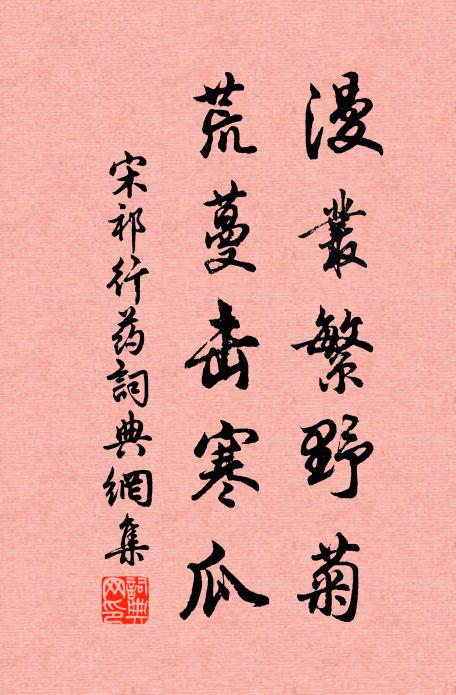 漫叢繁野菊
荒蔓击寒瓜
宋祁行药詞典網集
詞典
网印